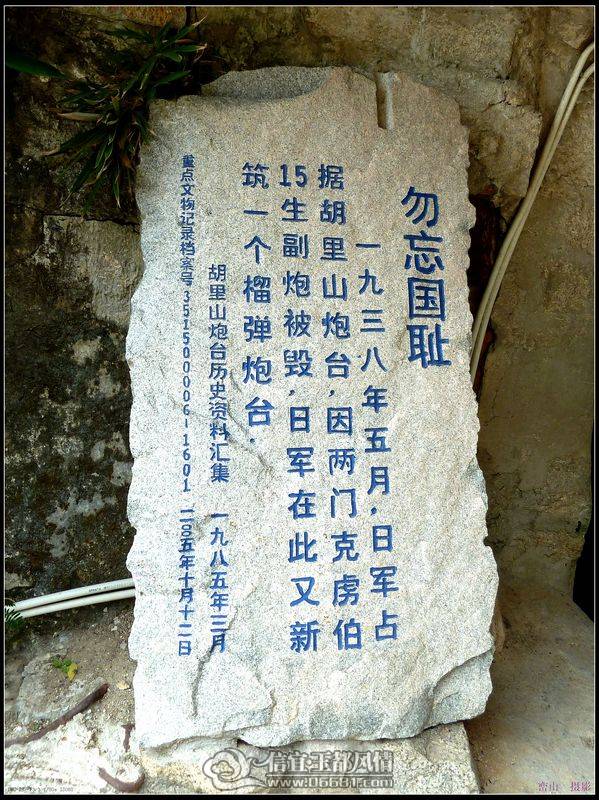 勿忘国耻
一九三八年五月,日军占
据胡里山炮台,因两门克虏伯
15生副炮被毁,日军在此又新
筑一个榴弹炮台.
胡里山炮台历史资料汇集 一九八五年三月
重点文物记录档案号351500006-1601 二〇〇五年十月十二日
信宜玉都风情
www.06681.com
峦山 摄影